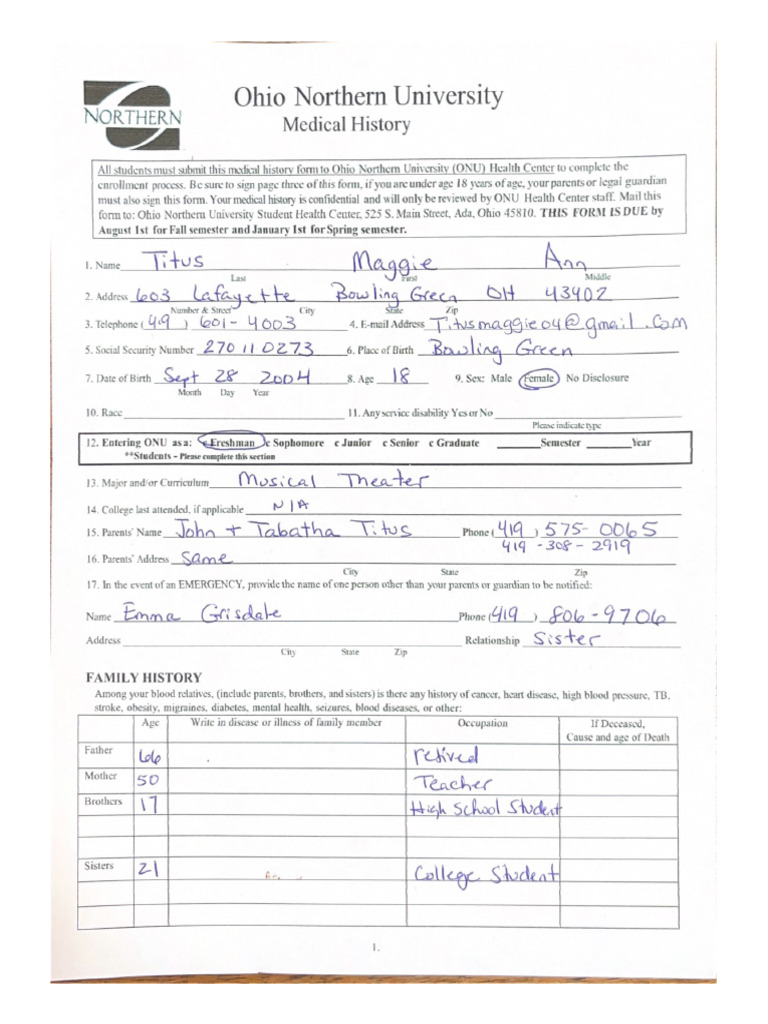 NORTHERN
Ohio Northern University
Medical History
All students must submit this medical history form to Ohio Northern University (ONU) Health Center to complete the
enrollment process. Be sure to sign page three of this form, if you are under age 18 years of age, your parents or legal guardian
must also sign this form. Your medical history is confidential and will only be reviewed by ONU Health Center staff. Mail this
form to: Ohio Northern University Student Health Center, 525 S. Main Street, Ada, Ohio 45810. THIS FORM IS DUE by
August 1st for Fall semester and January 1st for Spring semester.
1. Name Titus Maggie Ann
Last First Middle
2. Address 603 Lafayette Bowling Green OH 43402
Number & Street City State Zip
3. Telephone (419) 601-4003 4. E-mail Address Titusmaggie04@gmail.com
5. Social Security Number 270110273 6. Place of Birth Bowling Green
7. Date of Birth Sept 28 2004 8. Age 18 9. Sex: Male Female No Disclosure
Month Day Year
10. Race 11. Any service disability Yes or No
Please indicate type
12. Entering ONU as a: c Freshman c Sophomore c Junior c Senior c Graduate Semester Year
**Students - Please complete this section
13. Major and/or Curriculum Musical Theater
14. College last attended, if applicable N/A
15. Parents' Name John + Tabatha Titus Phone (419) 575-0065
419-308-2919
16. Parents' Address Same
City State Zip
17. In the event of an EMERGENCY, provide the name of one person other than your parents or guardian to be notified:
Name Emma Grisdale Phone (419) 806-9706
Address Relationship Sister
City State Zip
FAMILY HISTORY
Among your blood relatives, (include parents, brothers, and sisters) is there any history of cancer, heart disease, high blood pressure, TB,
stroke, obesity, migraines, diabetes, mental health, seizures, blood diseases, or other:
Age Write in disease or illness of family member Occupation If Deceased,
Cause and age of Death
Father 66 retired
Mother 50 Teacher
Brothers 17 High School Student
Sisters 21 College Student
1.